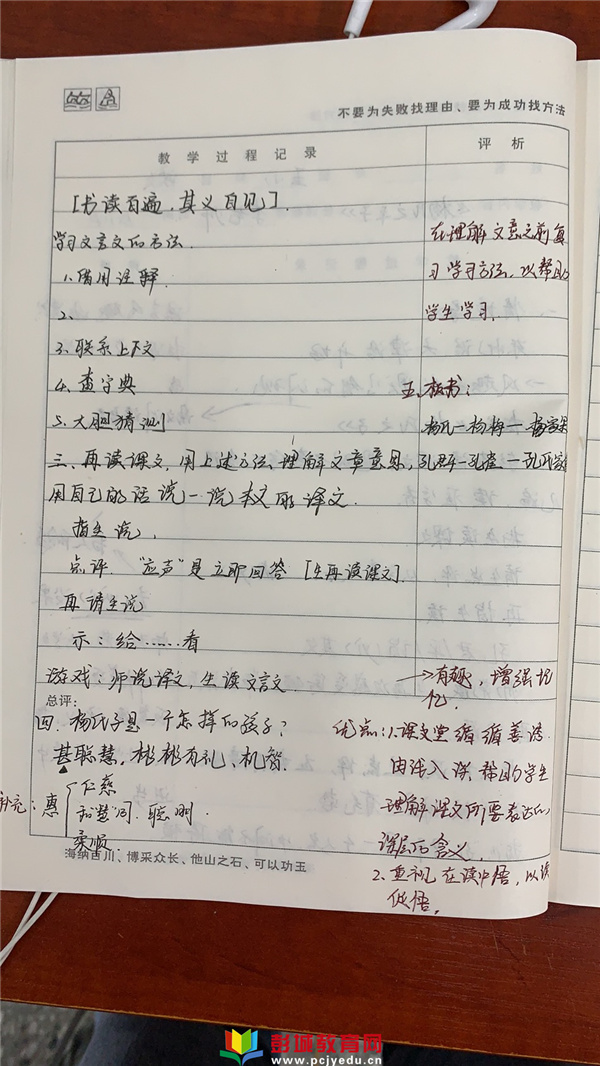 不要为失败找理由、要为成功找方法
教学过程记录
评析
[书读百遍,其义自见].
学习文言文的方法.
1.借用注释.
2、
3.联系上下文
4.查字典
5.大胆猜测
三、再读课文,用上述方法,理解文章意思,
用自己的话说一说本文的译文.
指生说.
点评. “应声”是立即回答 [生再读课文]
再请生说
示:给……看
游戏:师说译文,生读文言文.
总评:
四.杨氏子是一个怎样的孩子?
甚聪慧,彬彬有礼、机智.
补充:惠
仁慈
和“慧”同.聪明
柔顺.
海纳百川、博采众长、他山之石、可以功玉
在理解文意之前复
习学习方法,以帮助
学生学习.
五.板书:
杨氏—杨梅—杨家果
孔君平—孔雀—孔氏家
→有趣,增强记
忆.
优点:1.课文堂循循善诱.
由浅入深,帮助学生
理解课文所要表达的
深层的含义.
2.重视在读中悟,以读
促悟.
彭城教育网
www.pcjyedu.cn